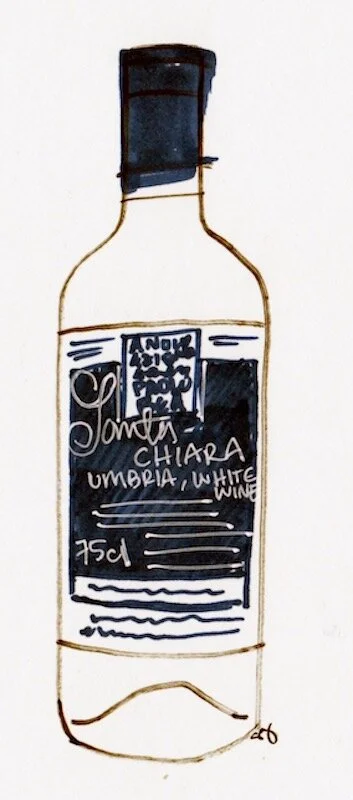 Santa
CHIARA
UMBRIA, WHITE
WINE
75cl